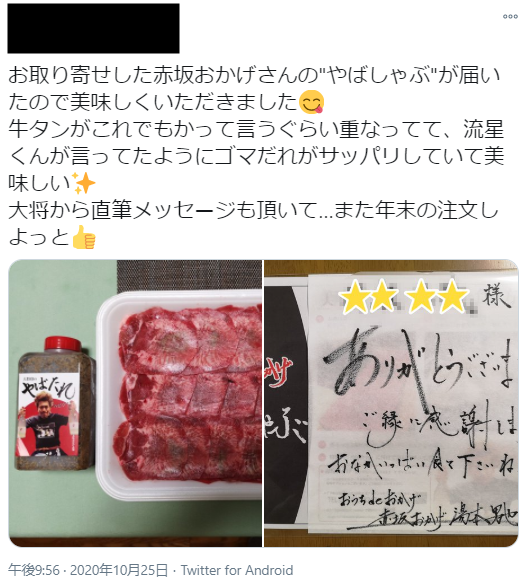 お取り寄せした赤坂おかげさんの"やばしゃぶ"が届い
たので美味しくいただきました😋
牛タンがこれでもかって言うぐらい重なってて、流星
くんが言ってたようにゴマだれがサッパリしていて美
味しい✨
大将から直筆メッセージも頂いて...また年末の注文し
よっと👍
やばたれ
様
ありがとうございま
ご縁に感謝しま
おなかいっぱい食て下さいね
おうちdeおかげ
赤坂おかげ 湯本
午後9:56 · 2020年10月25日 · Twitter for Android